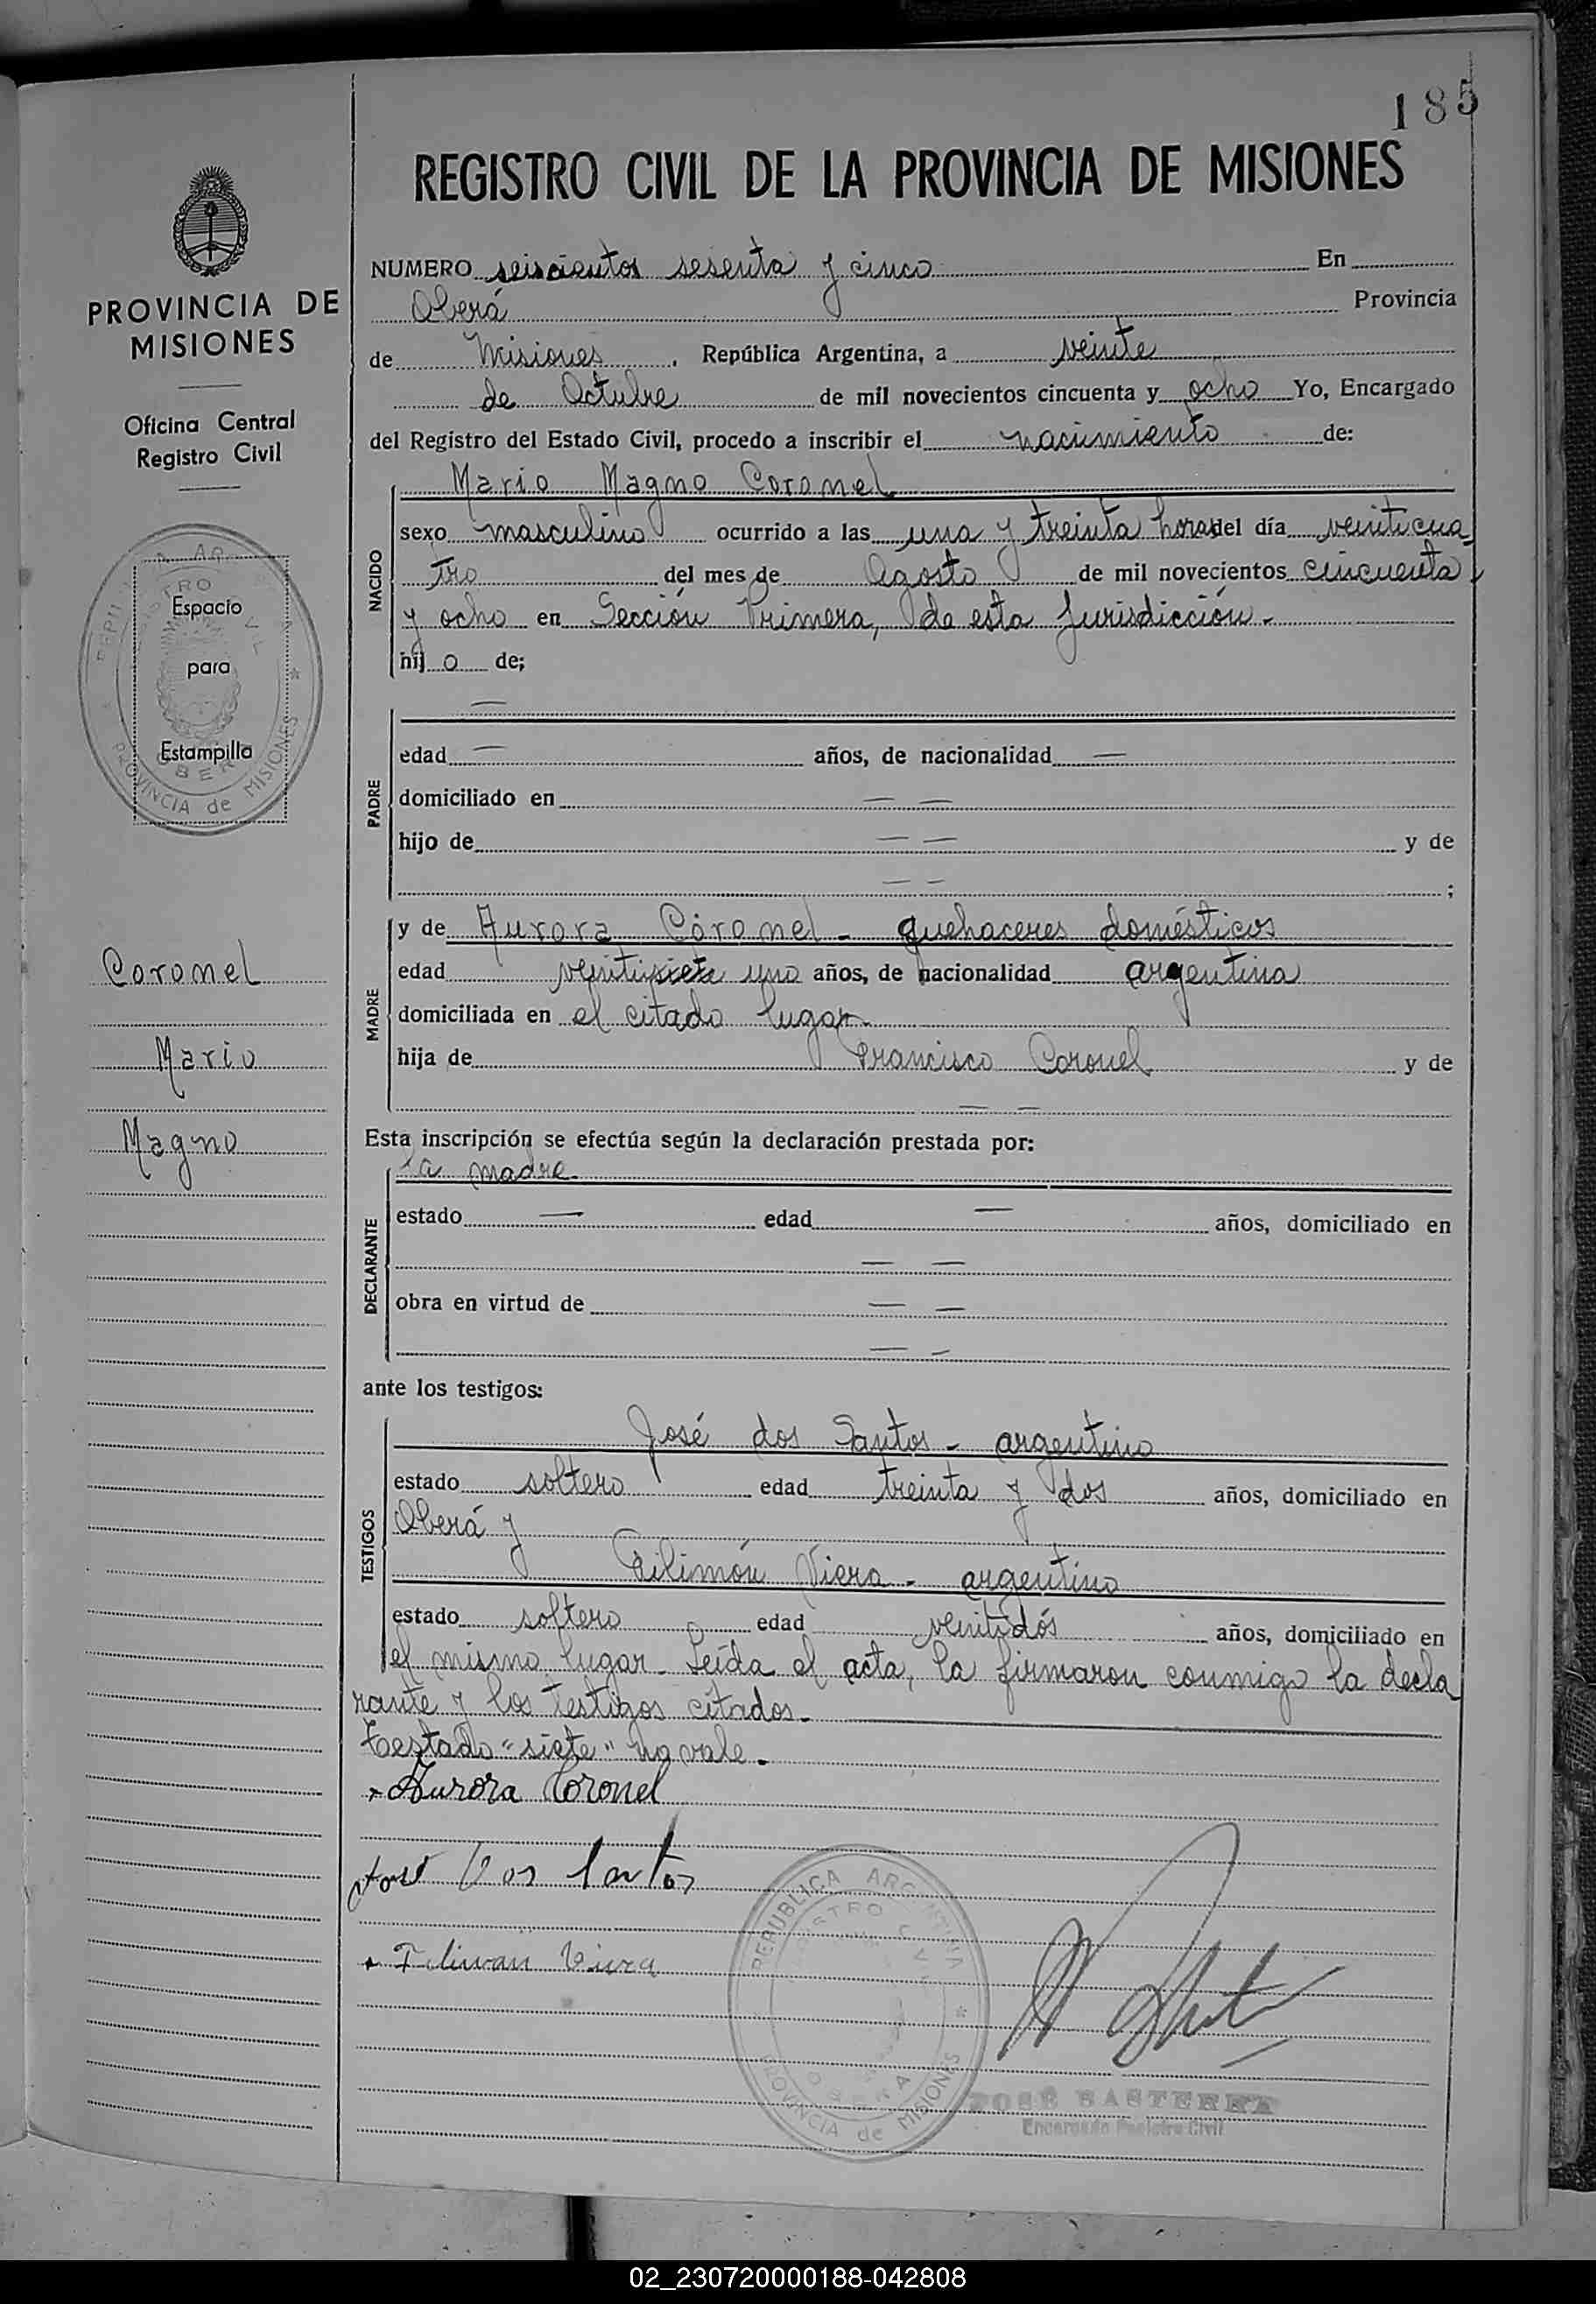 185
REGISTRO CIVIL DE LA PROVINCIA DE MISIONES
PROVINCIA DE
MISIONES
Oficina Central
Registro Civil
Espacio
para
Estampilla
PROVINCIA de MISIONES
Coronel
Mario
Magno
NUMERO seiscientos sesenta y cinco En
Oberá Provincia
de Misiones, República Argentina, a veinte
de Octubre de mil novecientos cincuenta y ocho Yo, Encargado
del Registro del Estado Civil, procedo a inscribir el nacimiento de:
NACIDO
Mario Magno Coronel
sexo masculino ocurrido a las una y treinta horas del día veinticua-
tro del mes de Agosto de mil novecientos cincuenta
y ocho en Sección Primera, de esta Jurisdicción.-
hij o de;
PADRE
—
edad — años, de nacionalidad —
domiciliado en — —
hijo de — — y de
— — ;
MADRE
y de Aurora Coronel - quehaceres domésticos
edad veintisiete uno años, de nacionalidad argentina
domiciliada en el citado lugar.-
hija de Francisco Coronel y de
— —
Esta inscripción se efectúa según la declaración prestada por:
DECLARANTE
la madre
estado — edad — años, domiciliado en
— —
obra en virtud de — —
— —
ante los testigos:
TESTIGOS
José dos Santos - argentino
estado soltero edad treinta y dos años, domiciliado en
Oberá y
Filimón Viera - argentino
estado soltero edad veintidós años, domiciliado en
el mismo lugar. Leída el acta, la firmaron conmigo la decla
rante y los testigos citados.-
Testado "siete" no vale.-
Aurora Coronel
José Dos Santos
REPUBLICA ARGENTINA
REGISTRO CIVIL
OBERA
PROVINCIA de MISIONES
JOSÉ BASTERRA
Encargado Registro Civil
02_230720000188-042808